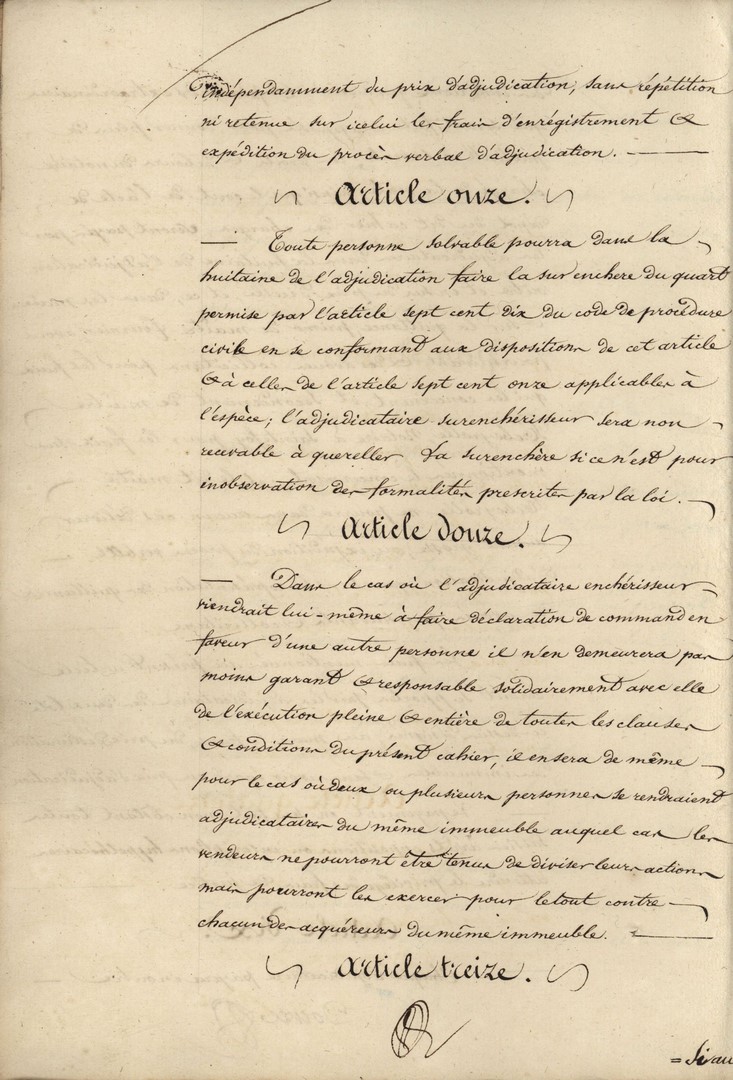 indépendamment du prix d'adjudication, sans répétition
ni retenue sur icelui les frais d'enrégistrement &
expédition du procès verbal d'adjudication.
Article onze.
Toute personne solvable pourra dans la
huitaine de l'adjudication faire la sur enchere du quart
permise par l'article sept cent dix du code de procédure
civile en se conformant aux dispositions de cet article
& à celles de l'article sept cent onze applicables à
l'espèce; l'adjudicataire surenchérisseur sera non
recevable à quereller la surenchère si ce n'est pour
inobservation des formalités prescrites par la loi.
Article douze.
Dans le cas où l'adjudicataire enchérisseur
viendrait lui-même à faire déclaration de command en
faveur d'une autre personne il n'en demeurera pas
moins garant & responsable solidairement avec elle
de l'exécution pleine & entière de toutes les clauses
& conditions du présent cahier, il en sera de même
pour le cas où deux ou plusieurs personnes se rendraient
adjudicataires du même immeuble auquel cas les
vendeurs ne pourront être tenus de diviser leurs actions
mais pourront les exercer pour le tout contre
chacun des acquéreurs du même immeuble.
Article treize.
= Si au